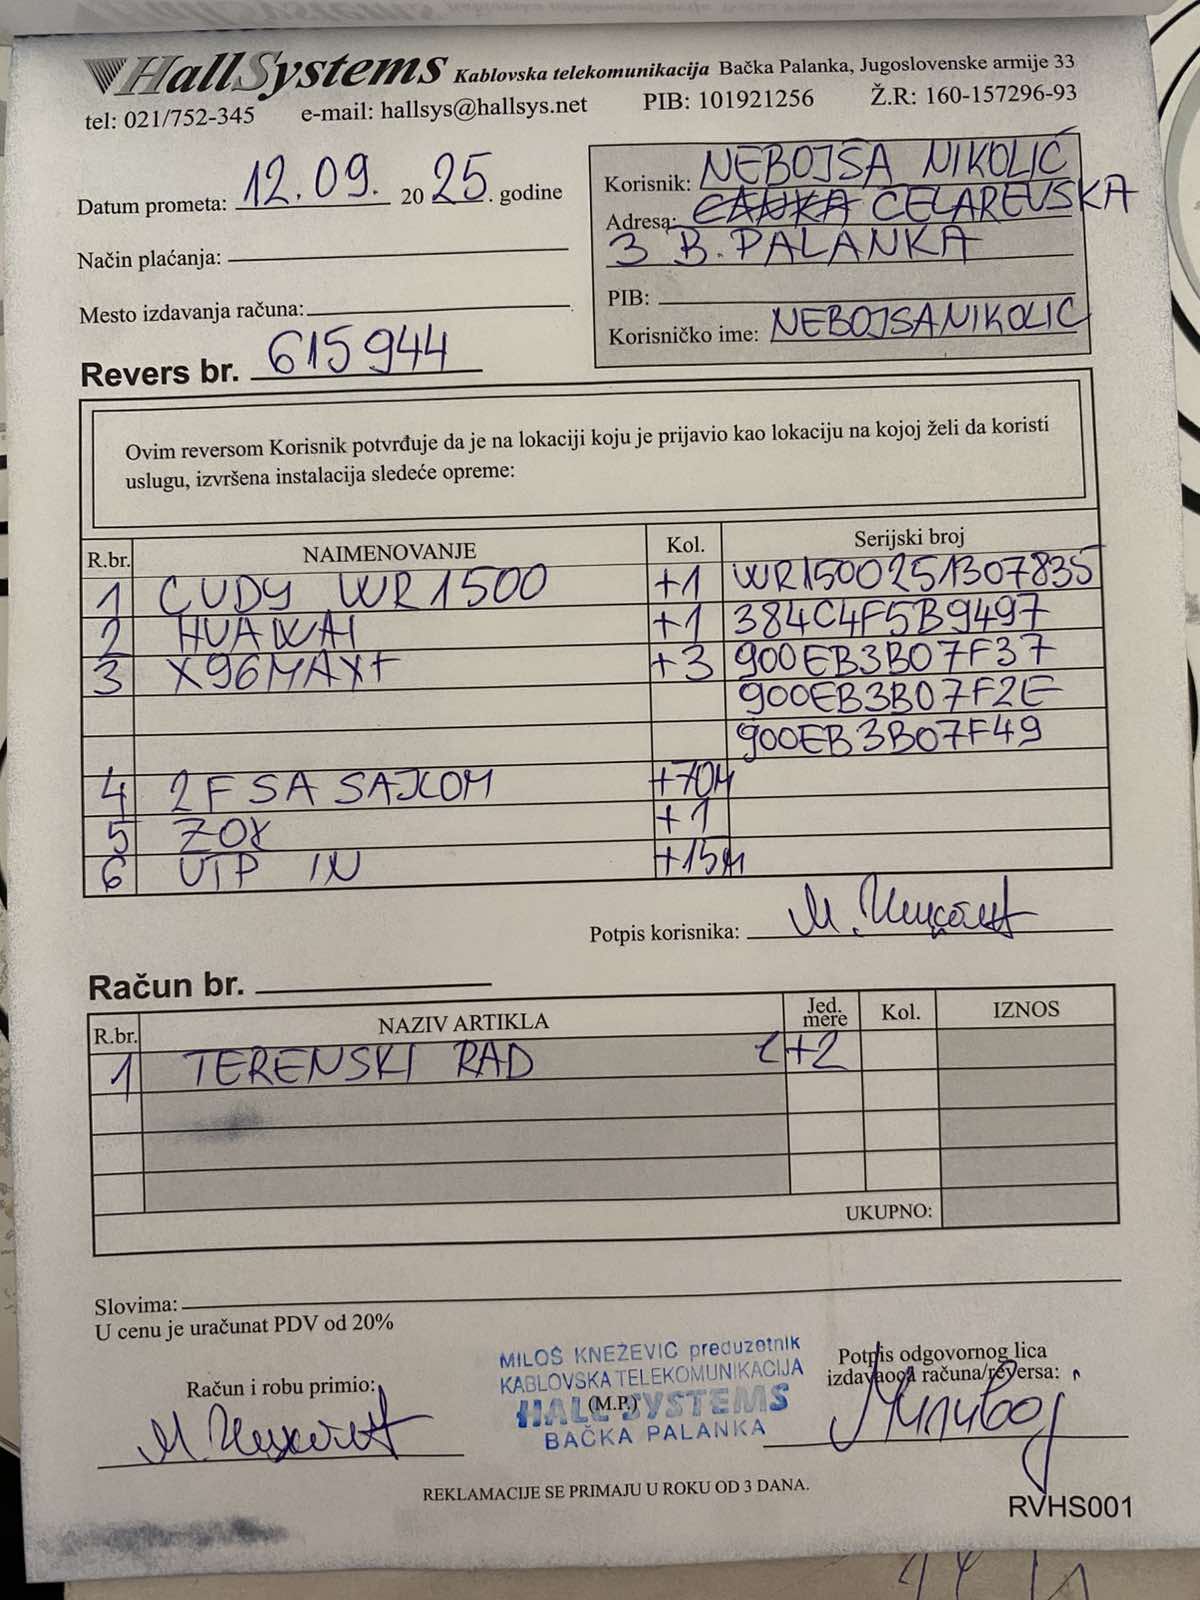 HallSystems Kablovska telekomunikacija Bačka Palanka, Jugoslovenske armije 33
tel: 021/752-345 e-mail: hallsys@hallsys.net PIB: 101921256 Ž.R: 160-157296-93
Datum prometa: 12.09. 2025. godine
Način plaćanja:
Mesto izdavanja računa:
Revers br. 615944
Korisnik: NEBOJSA NIKOLIĆ
Adresa: CELAREVSKA
3 B. PALANKA
PIB:
Korisničko ime: NEBOJSANIKOLIC
Ovim reversom Korisnik potvrđuje da je na lokaciji koju je prijavio kao lokaciju na kojoj želi da koristi
uslugu, izvršena instalacija sledeće opreme:
R.br. NAIMENOVANJE Kol. Serijski broj
1 CUDY WR1500 +1 WR1500251307835
2 HUAWAI +1 384C4F5B9497
3 X96MAX+ +3 900EB3B07F37
900EB3B07F2E
900EB3B07F49
4 2F SA SAJLOM +70M
5 ZOK +1
6 UTP IN +15M
Potpis korisnika:
Račun br.
R.br. NAZIV ARTIKLA Jed. mere Kol. IZNOS
1 TERENSKI RAD +2
UKUPNO:
Slovima:
U cenu je uračunat PDV od 20%
Račun i robu primio:
MILOŠ KNEŽEVIĆ preduzetnik
KABLOVSKA TELEKOMUNIKACIJA
(M.P.)
HALL SYSTEMS
BAČKA PALANKA
Potpis odgovornog lica
izdavaoca računa/reversa:
Миливој
REKLAMACIJE SE PRIMAJU U ROKU OD 3 DANA.
RVHS001